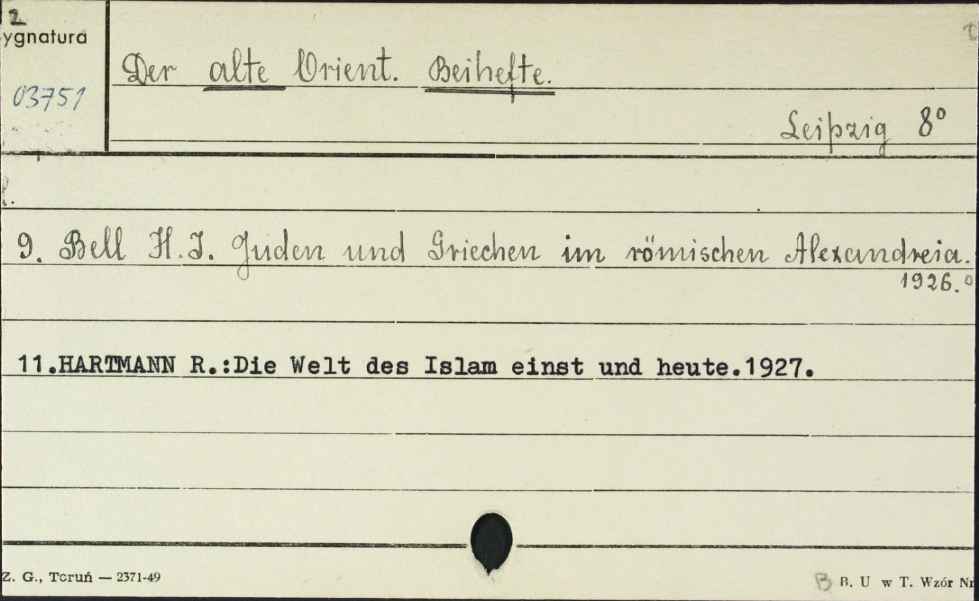 2
ygnatura
03751
Der alte Orient. Beihefte.
Leipzig 8°
9. Bell H.I. Juden und Griechen im römischen Alexandreia.
1926.°
11.HARTMANN R.:Die Welt des Islam einst und heute.1927.
Z. G., Toruń — 2371-49
B. U w T. Wzór Nr